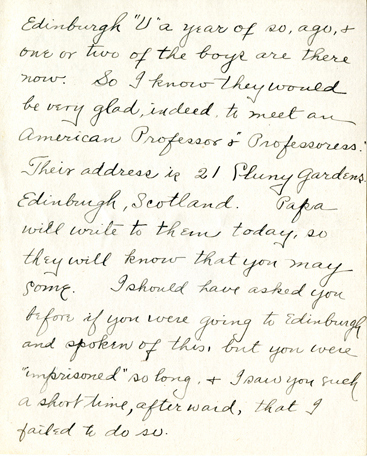 Edinburgh "U" a year of so, ago, &
one or two of the boys are there
now. So I know they would
be very glad, indeed, to meet an
American Professor & "Professoress."
Their address is 21 Cluny Gardens
Edinburgh, Scotland. Papa
will write to them today, so
they will know that you may
come. I should have asked you
before if you were going to Edinburgh
and spoken of this, but you were
"imprisoned" so long, & I saw you such
a short time, afterward, that I
failed to do so.